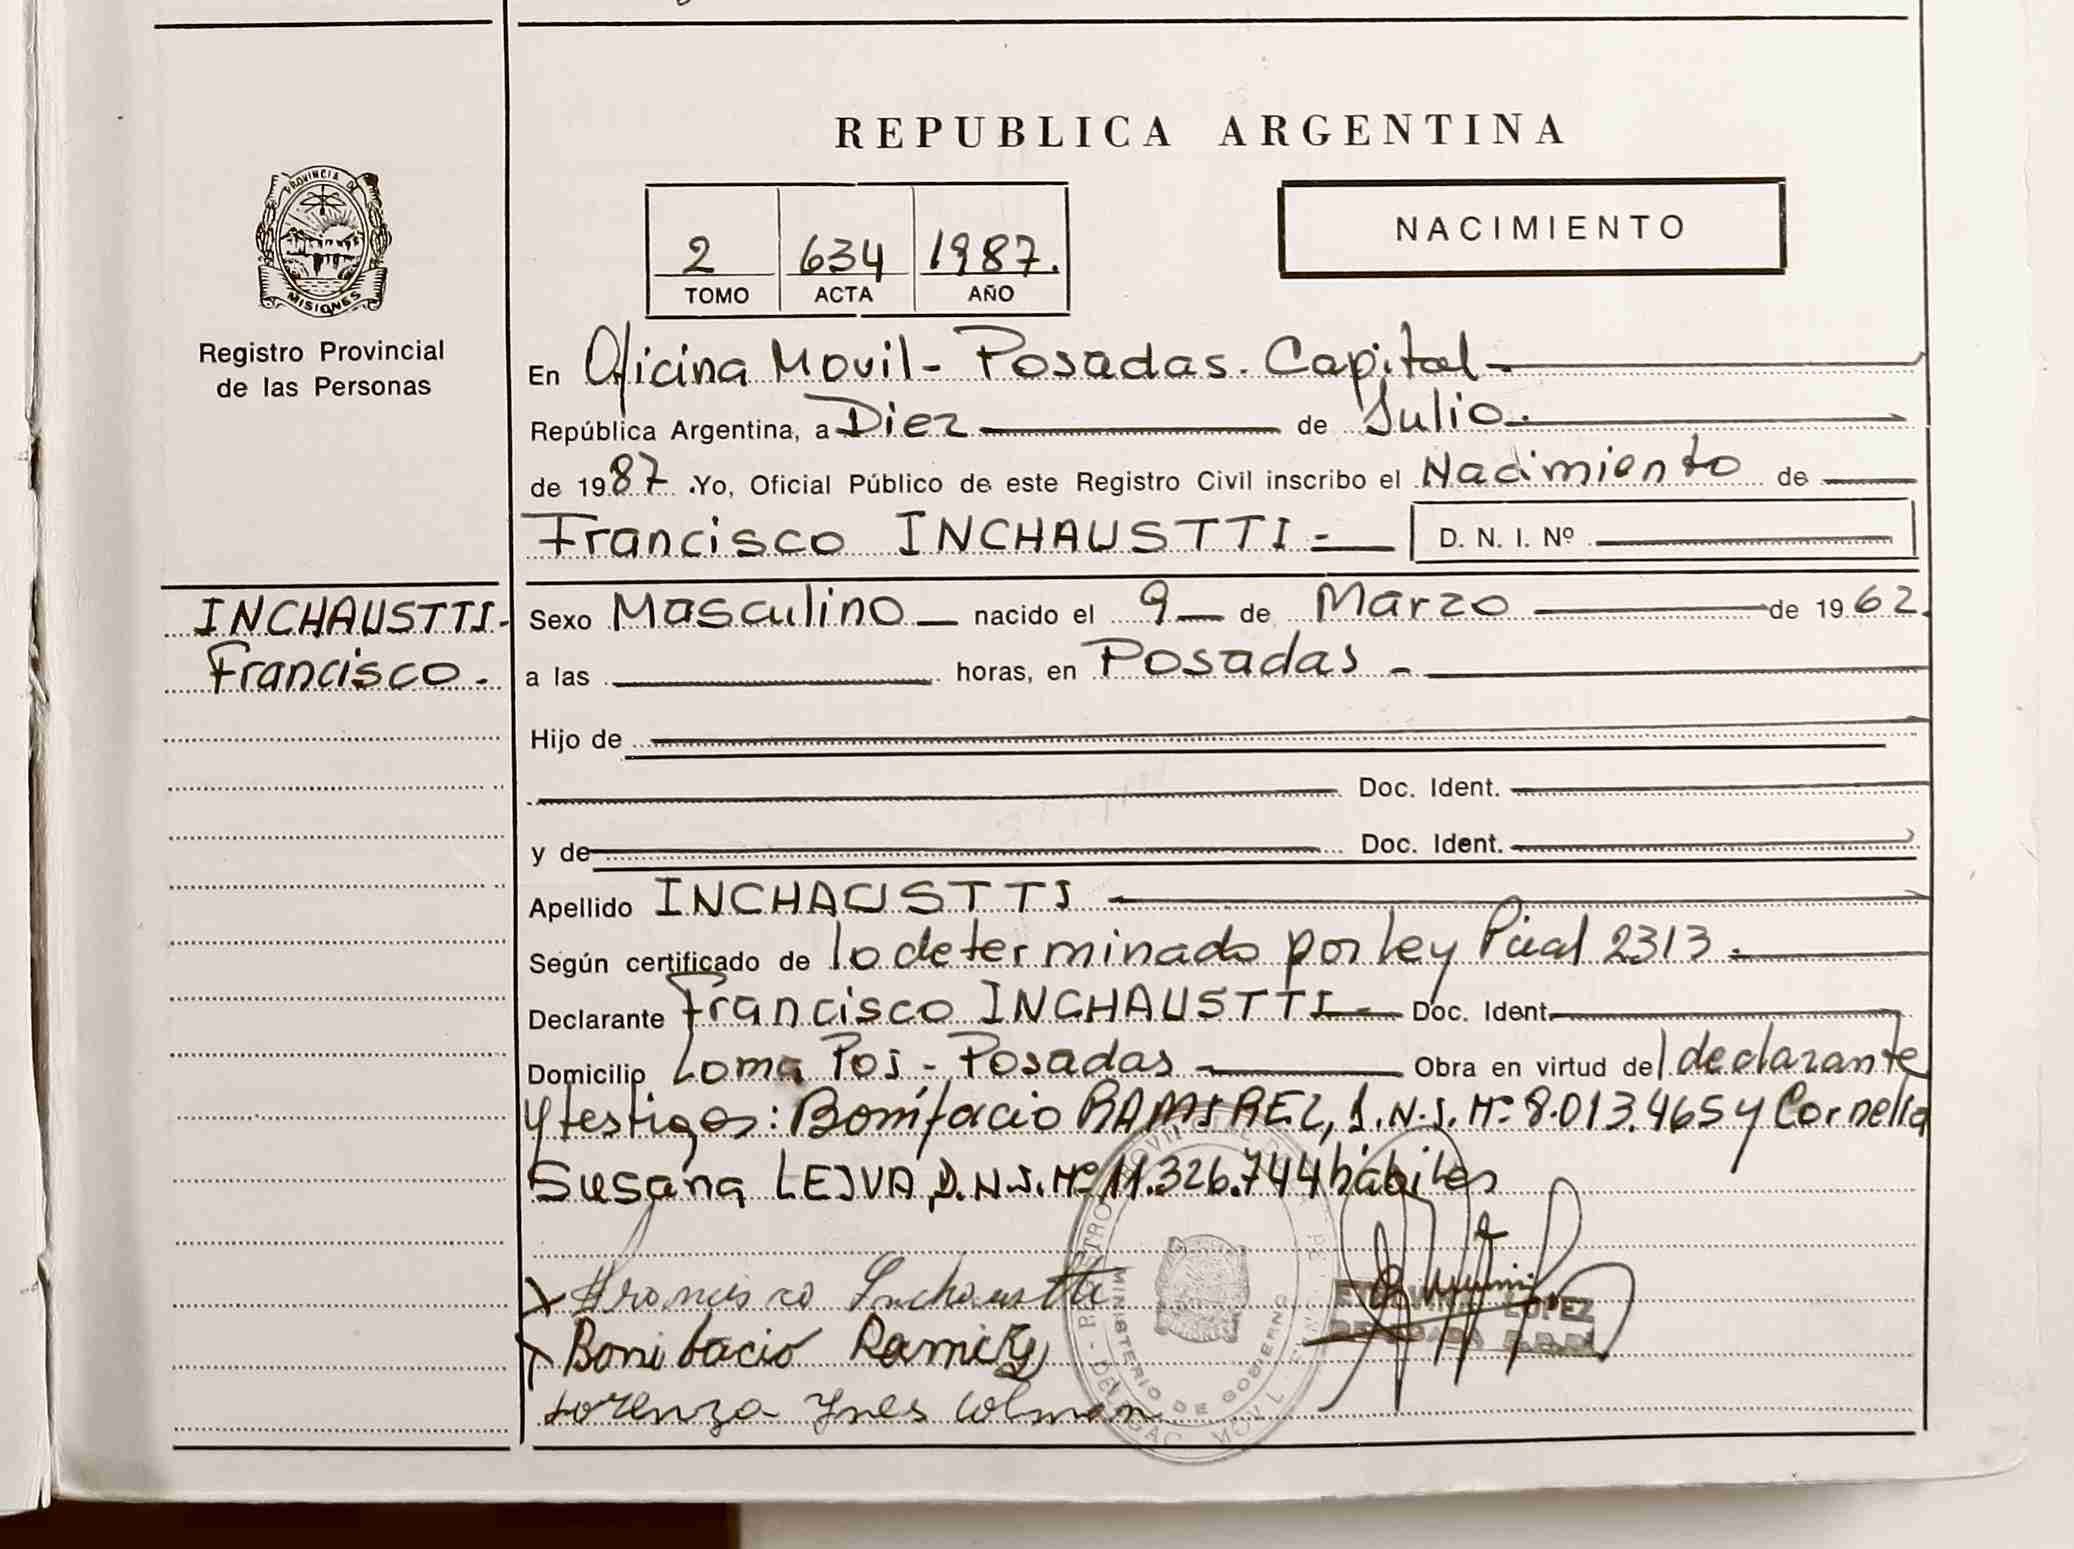 REPUBLICA ARGENTINA
PROVINCIA DE
MISIONES
Registro Provincial
de las Personas
2 634 1987.
TOMO ACTA AÑO
NACIMIENTO
En Oficina Movil - Posadas. Capital
República Argentina, a Diez de Julio.
de 1987. Yo, Oficial Público de este Registro Civil inscribo el Nacimiento de
Francisco INCHAUSTTI - D. N. I. Nº
INCHAUSTTI -
Francisco.
Sexo Masculino nacido el 9 de Marzo de 1962.
a las horas, en Posadas -
Hijo de
Doc. Ident.
y de Doc. Ident.
Apellido INCHAUSTTI
Según certificado de lo determinado por ley Pcial 2313.
Declarante Francisco INCHAUSTTI - Doc. Ident
Domicilio Loma Poi - Posadas Obra en virtud del declarante
y testigos: Bonifacio RAMIREZ, D.N.I. Nº 8.013.465 y Cornelia
Susana LEIVA, D.N.I. Nº 11.326.744 hábiles
Francisco Inchaustti
Bonifacio Ramirez
Lorenza Ynes Colman
MINISTERIO DE GOBIERNO
LOPEZ